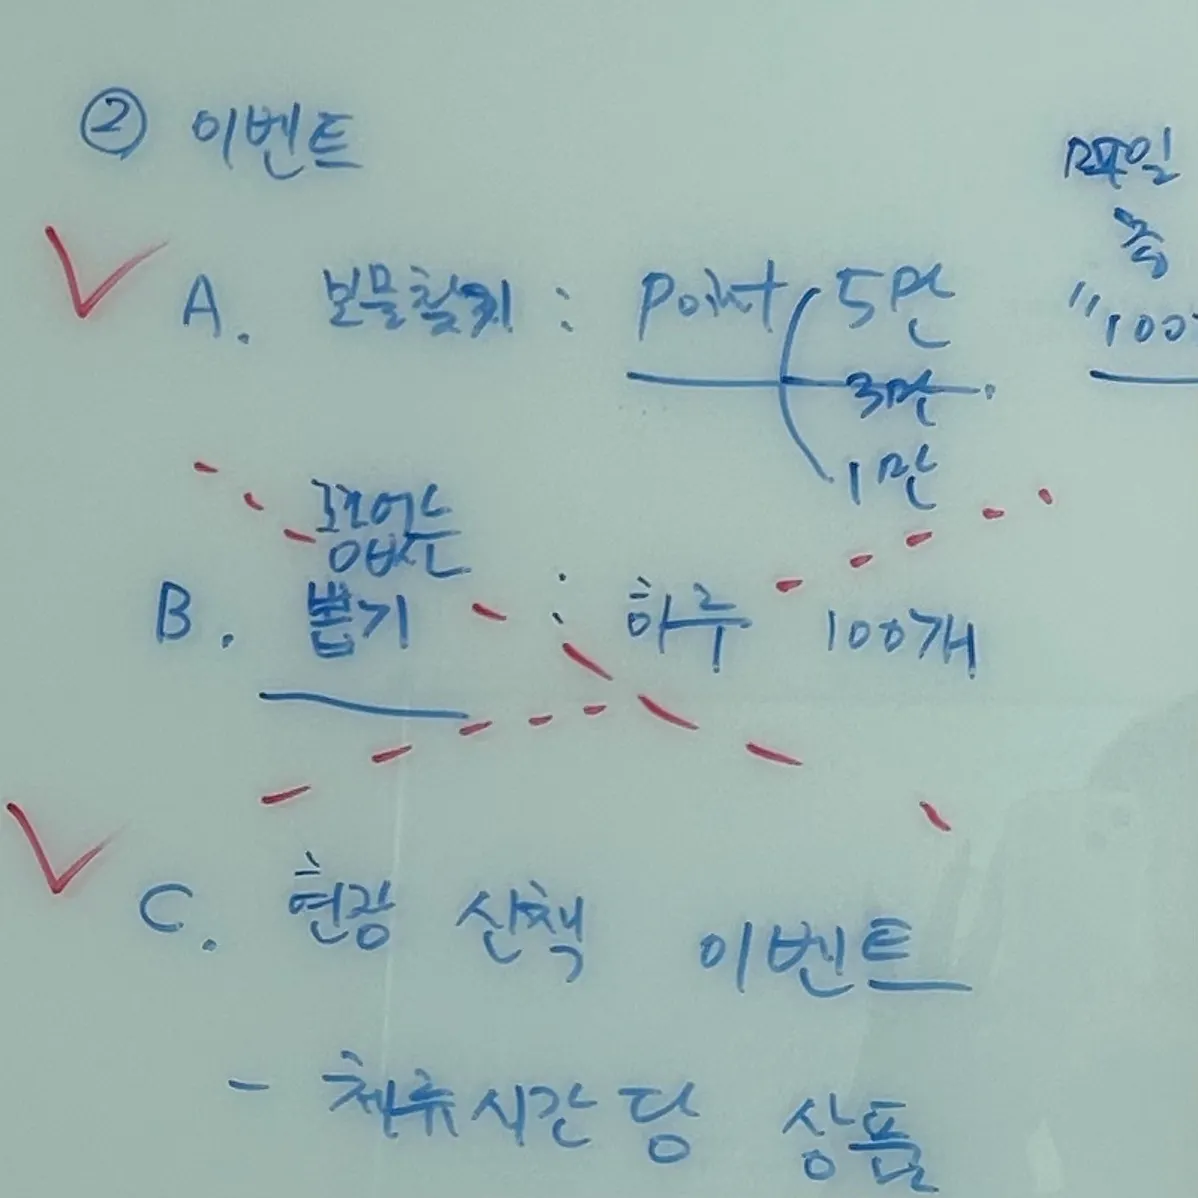 ② 이벤트
매일
A. 보물찾기 : Point 5만
3만
1만
즉
"100
꽝없는
B. 뽑기 : 하루 100개
C. 현광 산책 이벤트
- 체류시간당 상품